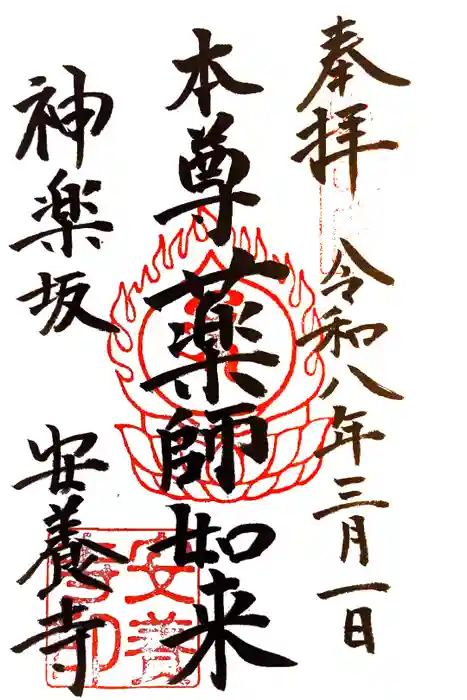 奉拝 令和八年三月一日
本尊 薬師如来
神楽坂 安養寺
安養寺印